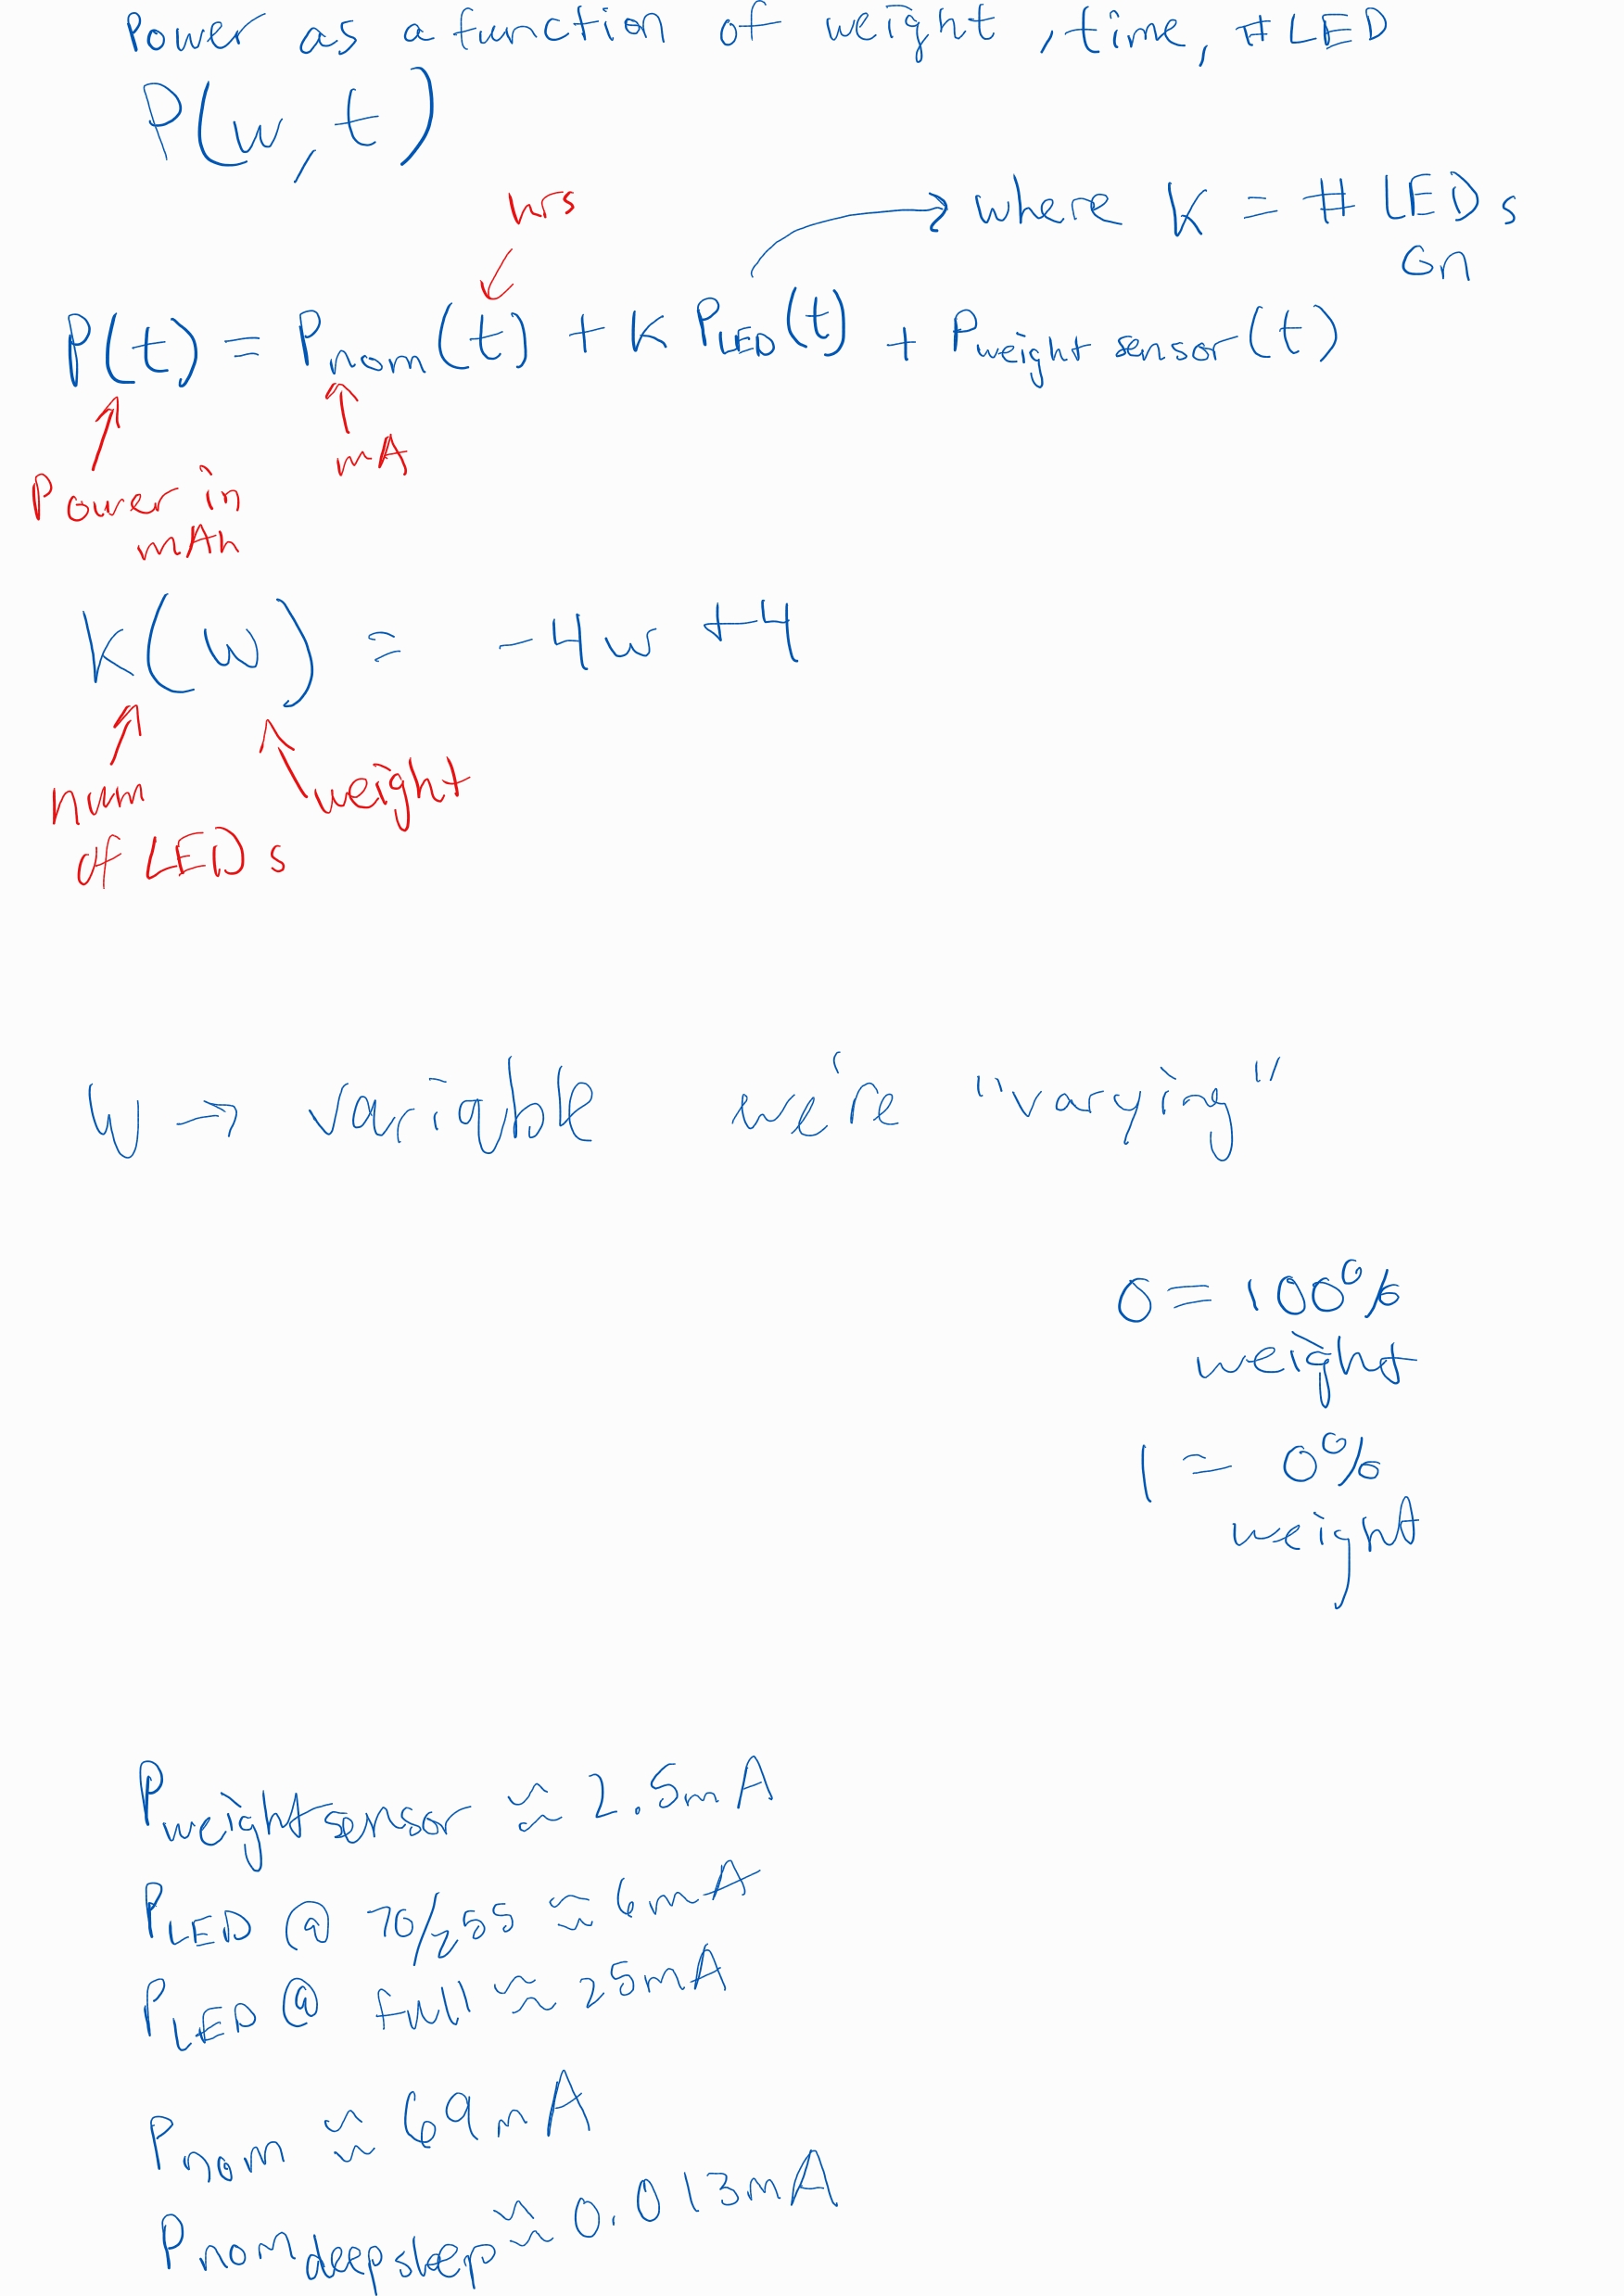 Power as a function of weight, time, #LED
P(w, t)
hrs
where K = # LEDs
on
P(t) = Pnom(t) + K PLED(t) + Pweight sensor(t)
mA
Power in
mAh
K(w) = -4w + 4
num
of LEDs
weight
W → variable we're "varying"
0 = 100%
weight
1 = 0%
weight
Pweight sensor ≈ 2.5mA
PLED @ 70/255 ≈ 6mA
PLED @ full ≈ 25mA
Pnom ≈ 69mA
Pnom deep sleep ≈ 0.013mA